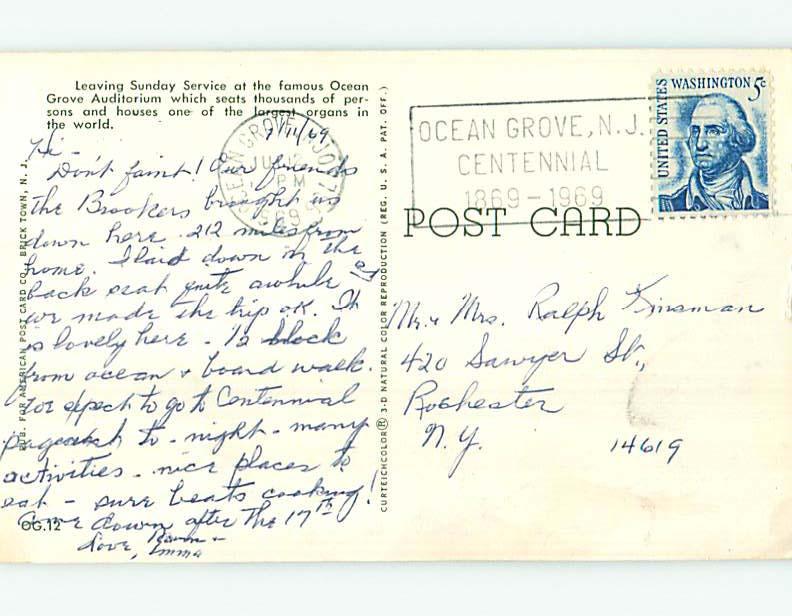 Leaving Sunday Service at the famous Ocean
Grove Auditorium which seats thousands of per-
sons and houses one of the largest organs in
the world.
7/11/69
Hi -
Don't faint! Our friends
the Brookers brought us
down here. 212 miles from
home. I laid down in the
back seat quite awhile
we made the trip o.K. It
is lovely here. - 1/2 block
from ocean + board walk.
expect to go to Centennial
pageant to-night - many
activities - nice places to
eat - sure beats cooking!
Come down after the 17th
Love,
Emma
OG.12
PUB. FOR AMERICAN POST CARD CO., BRICK TOWN, N. J.
CURTEICHCOLOR® 3-D NATURAL COLOR REPRODUCTION (REG. U. S. A. PAT. OFF.)
OCEAN GROVE
NJ
PM
1969
OCEAN GROVE, N.J.
CENTENNIAL
1869-1969
UNITED STATES
WASHINGTON 5c
POST CARD
Mr. & Mrs. Ralph Kinsman
420 Sawyer St.,
Rochester
N.Y. 14619